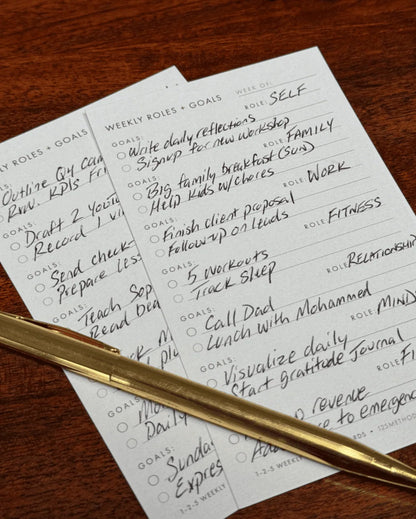 WEEKLY ROLES + GOALS
WEEK OF:
GOALS:
ROLE: SELF
Write daily reflections
Signup for new workshop
GOALS:
ROLE: FAMILY
Big family breakfast (SUN)
Help kids w/chores
GOALS:
ROLE: WORK
Finish client proposal
Follow-up on leads
GOALS:
ROLE: FITNESS
5 workouts
Track Sleep
GOALS:
ROLE: RELATIONSHIP
Call Dad
Lunch with Mohammed
GOALS:
ROLE: MIND
Visualize daily
Start gratitude Journal
ROLE:
revenue
to emergency
1-2-5 WEEKLY
LY ROLES + GOALS
GOALS:
Outline Q4
Rvw. KPIs
GOALS:
Draft 2
Record 1
GOALS:
Send check-
Prepare
GOALS:
Teach
Read
GOALS:
Daily
GOALS:
Sunda
Expres
1-2-5 WEEKLY